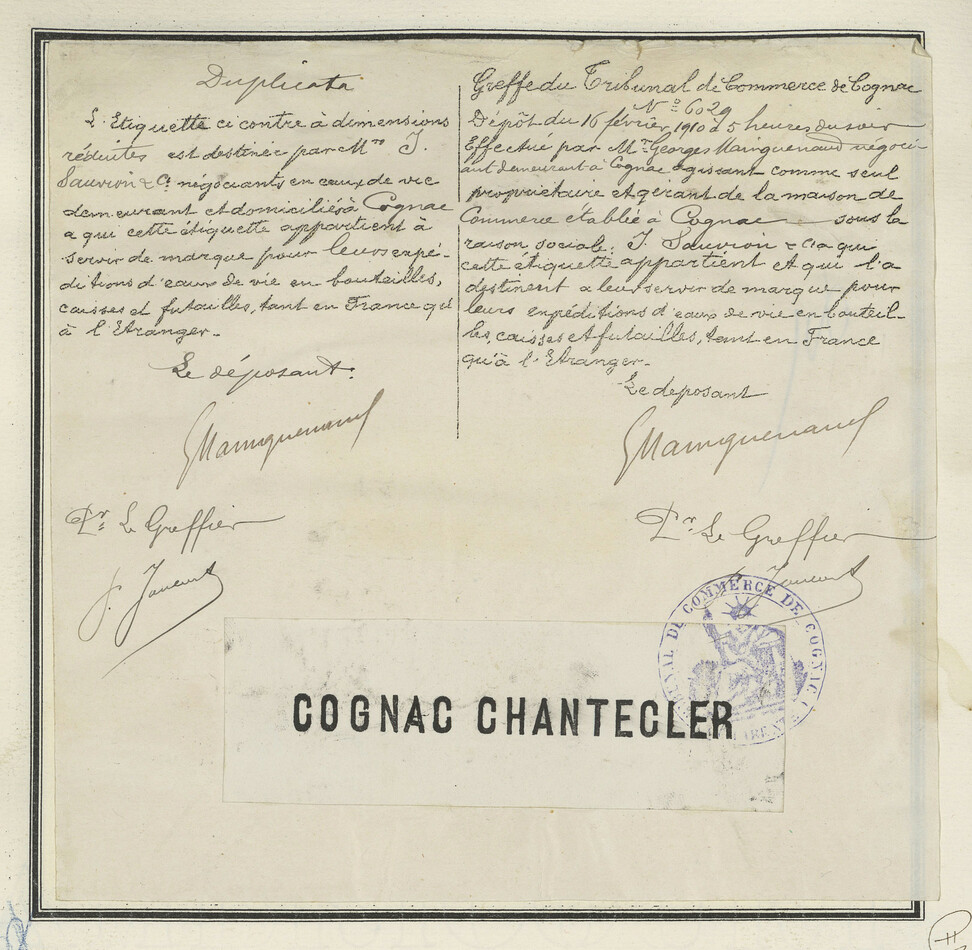 Duplicata
L'Etiquette ci contre à dimensions
réduites est destinée par Mrs J.
Sauvion & Ce négociants en eaux de vie
demeurant et domiciliés à Cognac
a qui cette étiquette appartient à
servir de marque pour leurs expé-
ditions d'eaux de vie en bouteilles,
caisses et futailles, tant en France qu'
à l'Etranger.
Le déposant.
GMainguenaud
Pr Le Greffier
Greffe du Tribunal de Commerce de Cognac
No 6029
Dépôt du 16 février 1910 à 5 heures du soir
Effectué par Mr Georges Mainguenaud négoci
ant demeurant à Cognac agissant comme seul
propriétaire et gérant de la maison de
Commerce établie à Cognac sous la
raison sociale: J. Sauvion & Cie a qui
cette étiquette appartient et qui l'a
destinent a leur servir de marque pour
leurs expéditions d'eaux de vie en bouteil-
les, caisses et futailles, tant en France
qu'à l'Etranger.
Le deposant
GMainguenaud
Pr Le Greffier
TRIBUNAL DE COMMERCE DE COGNAC
COGNAC CHANTECLER